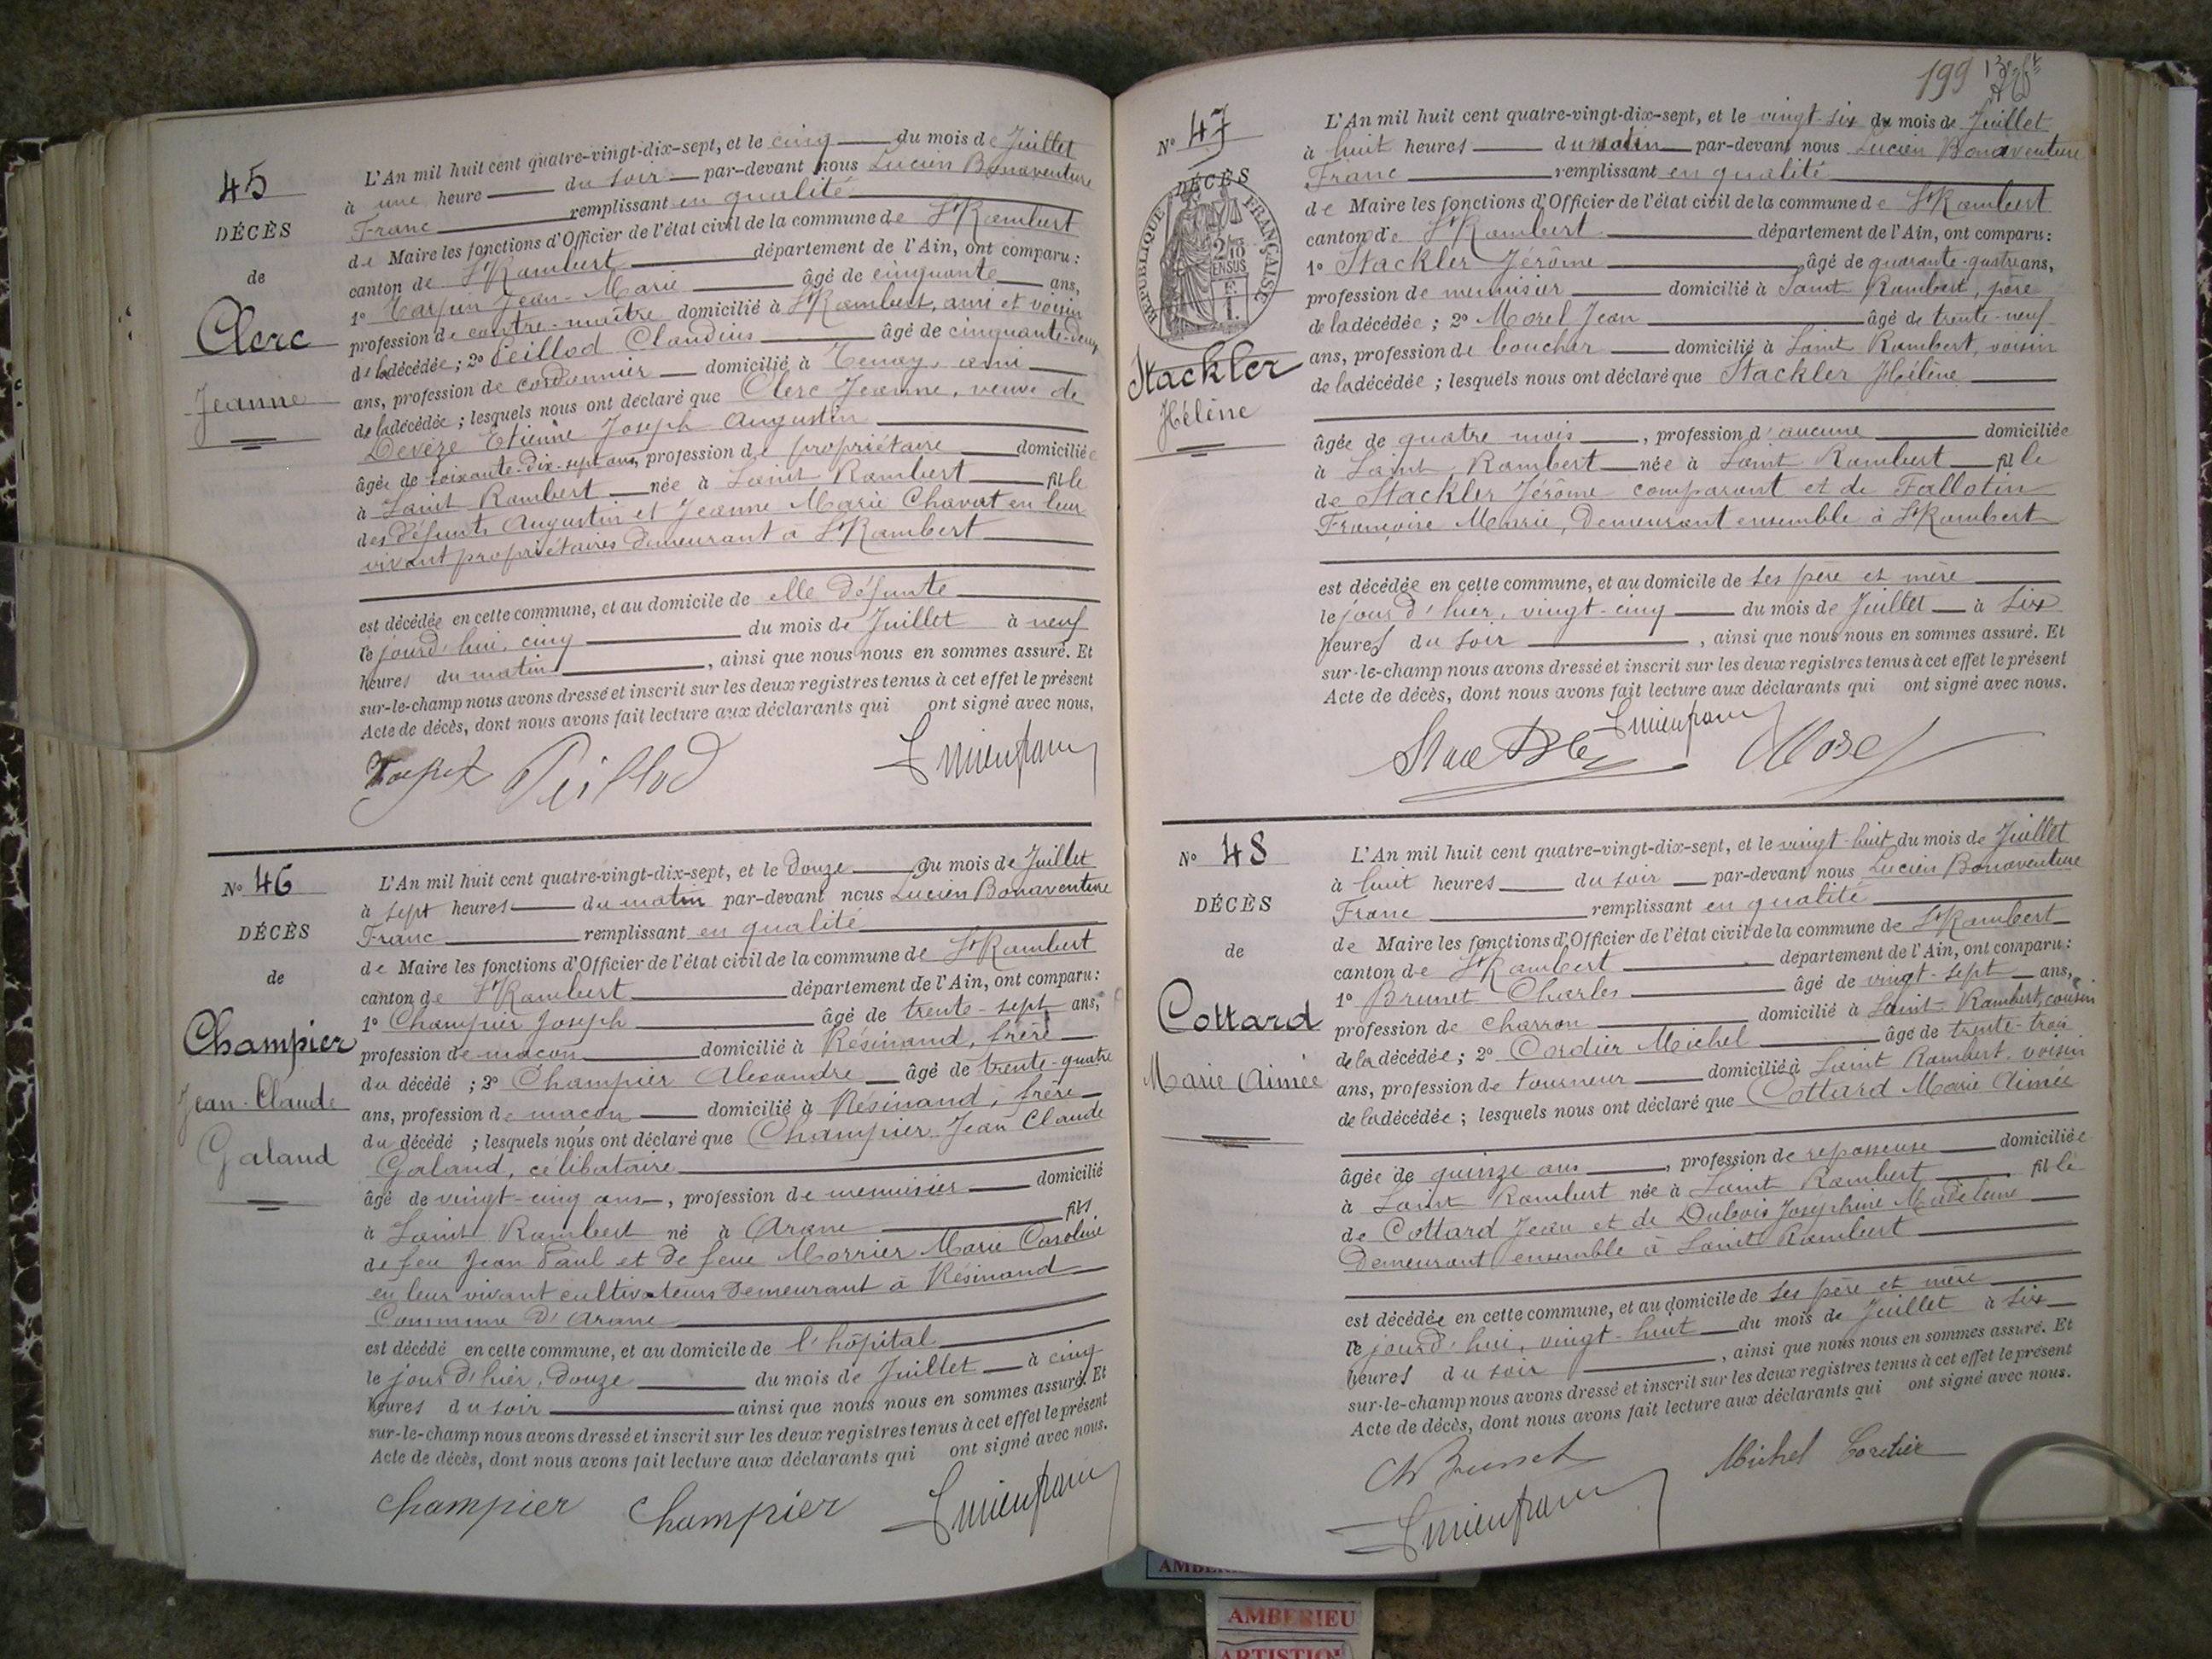 45
DÉCÈS
de
Clerc
Jeanne
L'An mil huit cent quatre-vingt-dix-sept, et le cinq du mois de Juillet
à une heure du soir par-devant nous Lucien Bonaventure
Franc remplissant en qualité
de Maire les fonctions d'Officier de l'état civil de la commune de St Rambert
canton de St Rambert département de l'Ain, ont comparu :
1º Jean-Marie âgé de cinquante ans,
profession de contre-maître domicilié à St Rambert, ami et voisin
de la décédée ; 2º Peillod Claudius âgé de cinquante-deux
ans, profession de cordonnier domicilié à Tenay, ami
de la décédée ; lesquels nous ont déclaré que Clerc Jeanne, veuve de
Devèze Etienne Joseph Augustin
âgée de soixante-dix-sept ans, profession de propriétaire domiciliée
à Saint Rambert née à Saint Rambert fille
des défunts Augustin et Jeanne Marie Chavat en leur
vivant propriétaires demeurant à St Rambert
est décédée en cette commune, et au domicile de elle défunte
le jourd'hui, cinq du mois de Juillet à neuf
heures du matin, ainsi que nous nous en sommes assuré. Et
sur-le-champ nous avons dressé et inscrit sur les deux registres tenus à cet effet le présent
Acte de décès, dont nous avons fait lecture aux déclarants qui ont signé avec nous,
Peillod
Nº 46
DÉCÈS
de
Champier
Jean-Claude
Galand
L'An mil huit cent quatre-vingt-dix-sept, et le douze du mois de Juillet
à sept heures du matin par-devant nous Lucien Bonaventure
Franc remplissant en qualité
de Maire les fonctions d'Officier de l'état civil de la commune de St Rambert
canton de St Rambert département de l'Ain, ont comparu :
1º Champier Joseph âgé de trente-sept ans,
profession de maçon domicilié à Résinand, frère
du décédé ; 2º Champier Alexandre âgé de trente-quatre
ans, profession de maçon domicilié à Résinand, frère
du décédé ; lesquels nous ont déclaré que Champier Jean Claude
Galand, célibataire
âgé de vingt-cinq ans, profession de menuisier domicilié
à Saint Rambert né à Arane fils
de feu Jean Paul et de feue Morrier Marie Caroline
en leur vivant cultivateurs demeurant à Résinand
Commune d'Arane
est décédé en cette commune, et au domicile de l'hôpital
le jour d'hier, douze du mois de Juillet à cinq
heures du soir ainsi que nous nous en sommes assuré. Et
sur-le-champ nous avons dressé et inscrit sur les deux registres tenus à cet effet le présent
Acte de décès, dont nous avons fait lecture aux déclarants qui ont signé avec nous.
Champier Champier
199
Nº 47
DÉCÈS
RÉPUBLIQUE FRANÇAISE
2/10 EN SUS
Stackler
Hélène
L'An mil huit cent quatre-vingt-dix-sept, et le vingt-six du mois de Juillet
à huit heures du matin par-devant nous Lucien Bonaventure
Franc remplissant en qualité
de Maire les fonctions d'Officier de l'état civil de la commune de St Rambert
canton de St Rambert département de l'Ain, ont comparu :
1º Stackler Jérôme âgé de quarante-quatre ans,
profession de menuisier domicilié à Saint Rambert, père
de la décédée ; 2º Morel Jean âgé de trente-neuf
ans, profession de boucher domicilié à Saint Rambert, voisin
de la décédée ; lesquels nous ont déclaré que Stackler Hélène
âgée de quatre mois, profession d'aucune domiciliée
à Saint Rambert née à Saint Rambert fille
de Stackler Jérôme comparant et de Fallotin
Françoise Marie, demeurant ensemble à St Rambert
est décédée en cette commune, et au domicile de ses père et mère
le jour d'hier, vingt-cinq du mois de Juillet à six
heures du soir, ainsi que nous nous en sommes assuré. Et
sur-le-champ nous avons dressé et inscrit sur les deux registres tenus à cet effet le présent
Acte de décès, dont nous avons fait lecture aux déclarants qui ont signé avec nous.
Morel
Nº 48
DÉCÈS
de
Cottard
Marie Aimée
L'An mil huit cent quatre-vingt-dix-sept, et le vingt-huit du mois de Juillet
à huit heures du soir par-devant nous Lucien Bonaventure
Franc remplissant en qualité
de Maire les fonctions d'Officier de l'état civil de la commune de St Rambert
canton de St Rambert département de l'Ain, ont comparu :
1º Brunet Charles âgé de vingt-sept ans,
profession de charron domicilié à Saint-Rambert, cousin
de la décédée ; 2º Cordier Michel âgé de trente-trois
ans, profession de tourneur domicilié à Saint Rambert, voisin
de la décédée ; lesquels nous ont déclaré que Cottard Marie Aimée
âgée de quinze ans, profession de repasseuse domiciliée
à Saint Rambert née à Saint Rambert fille
de Cottard Jean et de Dubois Joséphine Madeleine
demeurant ensemble à Saint Rambert
est décédée en cette commune, et au domicile de ses père et mère
le jourd'hui, vingt-huit du mois de Juillet à six
heures du soir, ainsi que nous nous en sommes assuré. Et
sur-le-champ nous avons dressé et inscrit sur les deux registres tenus à cet effet le présent
Acte de décès, dont nous avons fait lecture aux déclarants qui ont signé avec nous.
Ch Brunet Michel Cordier
AMBERIEU